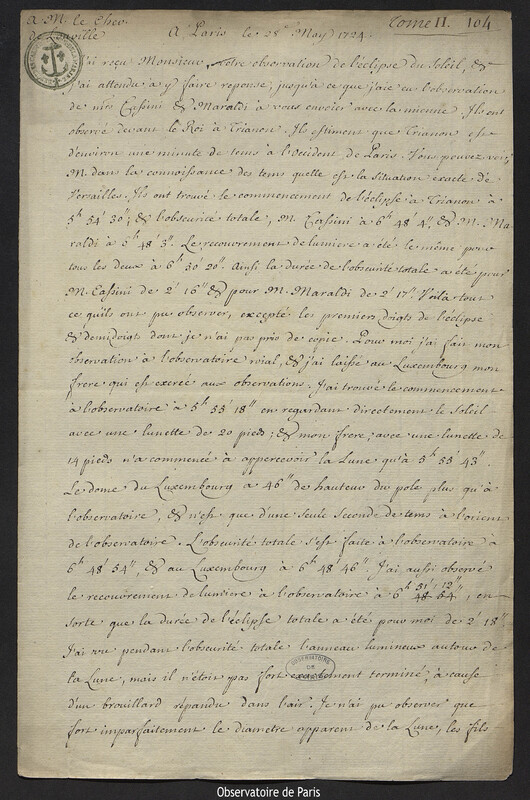 A M. le Chev. de Louville
A Paris le 28e May 1724
Tome II. 104
J'ai reçu Monsieur, votre observation de l'éclipse du Soleil, &
j'ai attendu à y faire reponse, jusqu'à ce que j'aie eu l'observation
de mrs Cassini & Maraldi à vous envoier avec la mienne. Ils ont
observé devant le Roi à Trianon. Ils estiment que Trianon est
d'environ une minute de tems à l'Occident de Paris. Vous pouvez voir,
M. dans la connoissance des tems quelle est la situation exacte de
Versailles. Ils ont trouvé le commencement de l'éclipse à Trianon à
5h 54' 30"; & l'obscurité totale, M. Cassini à 6h 48' 4", & M. Ma-
raldi à 6h 48' 3". Le recouvrement de lumiere a été le même pour
tous les deux à 6h 50' 20". Ainsi la durée de l'obscurité totale a été pour
M. Cassini de 2' 16" & pour M. Maraldi de 2' 17". Voilà tout
ce qu'ils ont pu observer, excepté les premiers doigts de l'éclipse
& demidoigts dont je n'ai pas pris de copie. Pour moi j'ai fait mon
observation à l'observatoire roial, & j'ai laissé au Luxembourg mon
frere qui est exercé aux observations. J'ai trouvé le commencement
à l'observatoire à 5h 55' 18" en regardant directement le Soleil
avec une lunette de 20 pieds; & mon frere, avec une lunette de
14 pieds n'a commencé à appercevoir la Lune qu'à 5h 55' 43".
Le dome du Luxembourg a 46" de hauteur du pole plus qu'à
l'observatoire, & n'est que d'une seule seconde de tems à l'orient
de l'observatoire. L'obscurité totale s'est faite à l'observatoire à
6h 48' 54", & au Luxembourg à 6h 48' 46". J'ai aussi observé
le recouvrement de lumiere à l'observatoire à 6h 51' 12", en
sorte que la durée de l'éclipse totale a été pour moi de 2' 18".
J'ai vu pendant l'obscurité totale l'anneau lumineux autour de
la Lune, mais il n'étoit pas fort exactement terminé, à cause
d'un brouillard répandu dans l'air. Je n'ai pu observer que
fort imparfaitement le diametre apparent de la Lune, les fils
OBSERVATOIRE DE
Observatoire de Paris